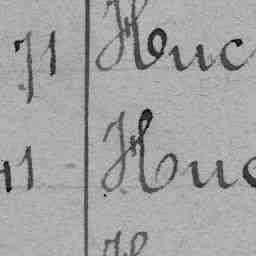 71 Huc
41 Huc